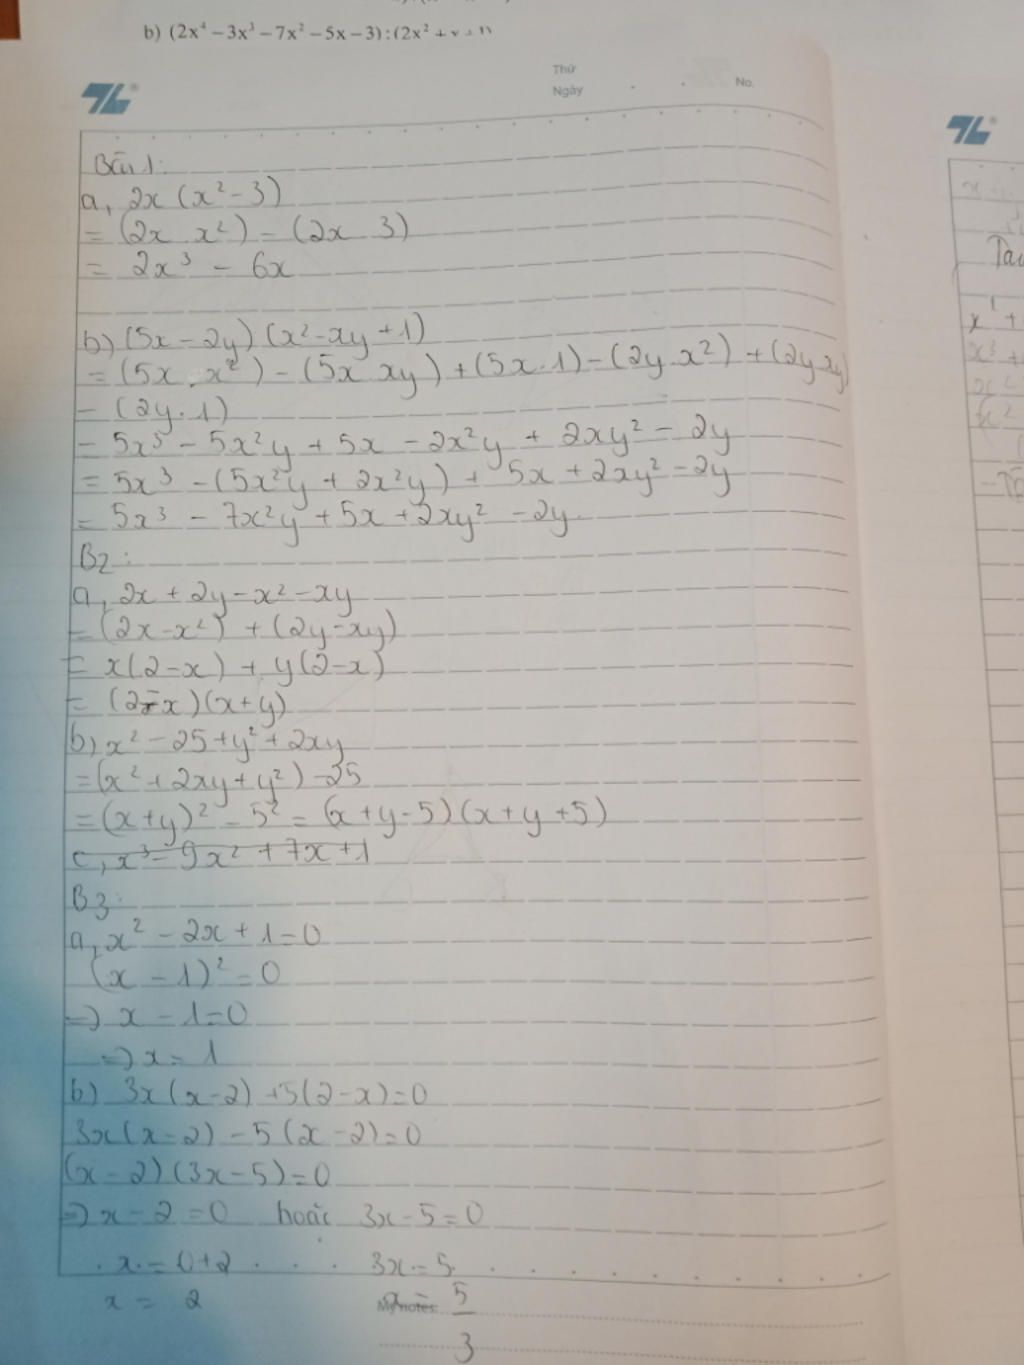 b) (2x⁴ – 3x³ – 7x² – 5x – 3) : (2x² + x + 1)
Thứ
Ngày
No.
Bài 1:
a, 2x (x² - 3)
= (2x . x²) - (2x 3)
= 2x³ - 6x
b) (5x - 2y) (x² - xy + 1)
= (5x . x²) - (5x xy) + (5x . 1) - (2y . x²) + (2y xy)
- (2y . 1)
= 5x³ - 5x²y + 5x - 2x²y + 2xy² - 2y
= 5x³ - (5x²y + 2x²y) + 5x + 2xy² - 2y
= 5x³ - 7x²y + 5x + 2xy² - 2y
B2:
a, 2x + 2y - x² - xy
= (2x - x²) + (2y - xy)
= x(2 - x) + y(2 - x)
= (2 - x)(x + y)
b) x² - 25 + y² + 2xy
= (x² + 2xy + y²) - 25
= (x + y)² - 5² = (x + y - 5)(x + y + 5)
c, x³ - 9x² + 7x + 1
B3:
a, x² - 2x + 1 = 0
(x - 1)² = 0
=> x - 1 = 0
=> x = 1
b) 3x(x - 2) + 5(2 - x) = 0
3x(x - 2) - 5(x - 2) = 0
(x - 2)(3x - 5) = 0
=> x - 2 = 0 hoặc 3x - 5 = 0
x = 0 + 2 3x = 5
x = 2 x = 5/3
My notes: